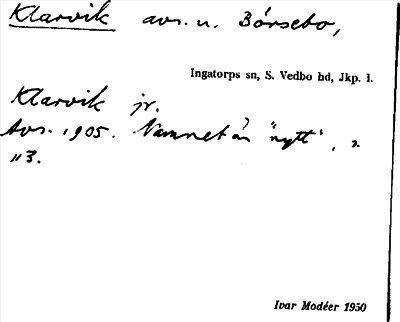 Klarvik avs. u. Börsebo,
Ingatorps sn, S. Vedbo hd, Jkp. l.
Klarvik jr.
Avs. 1905. Namnet är "nytt",
113.
Ivar Modéer 1950